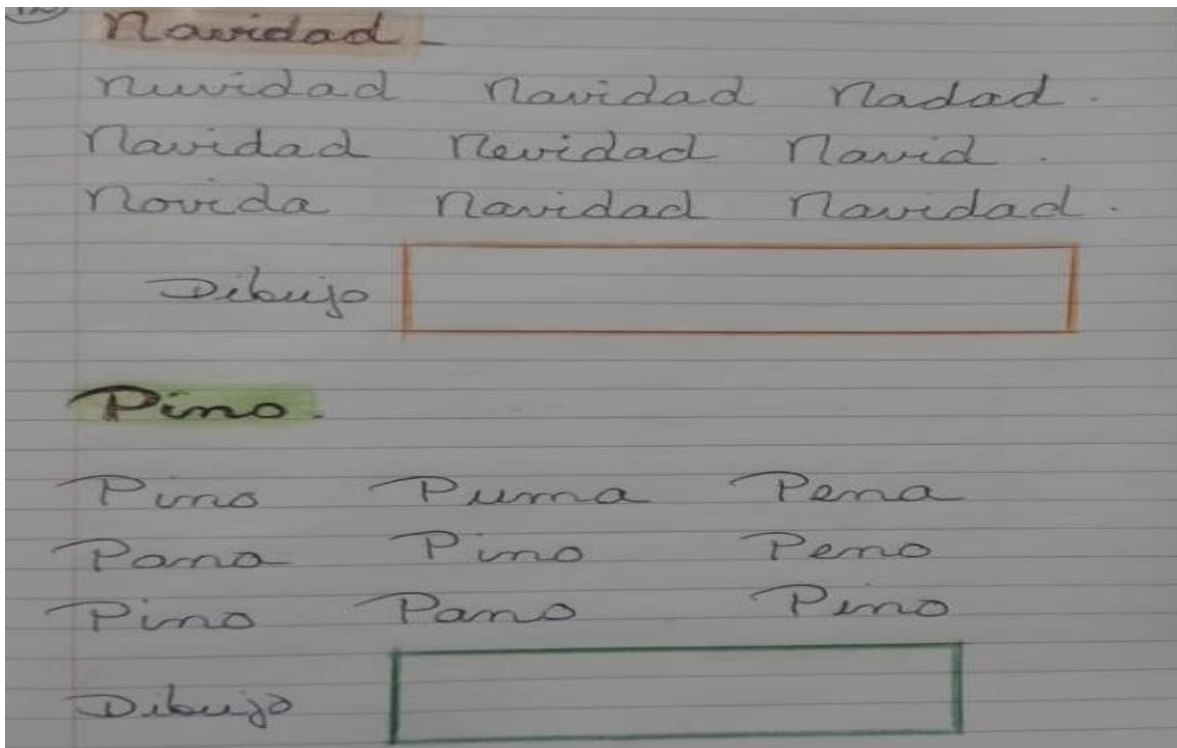 Navidad
Nuvidad Navidad Nadad.
Navidad Nevidad Navid.
Novida Navidad Navidad.
Dibujo
Pino.
Pino Puma Pena
Pana Pino Peno
Pino Pano Pino
Dibujo